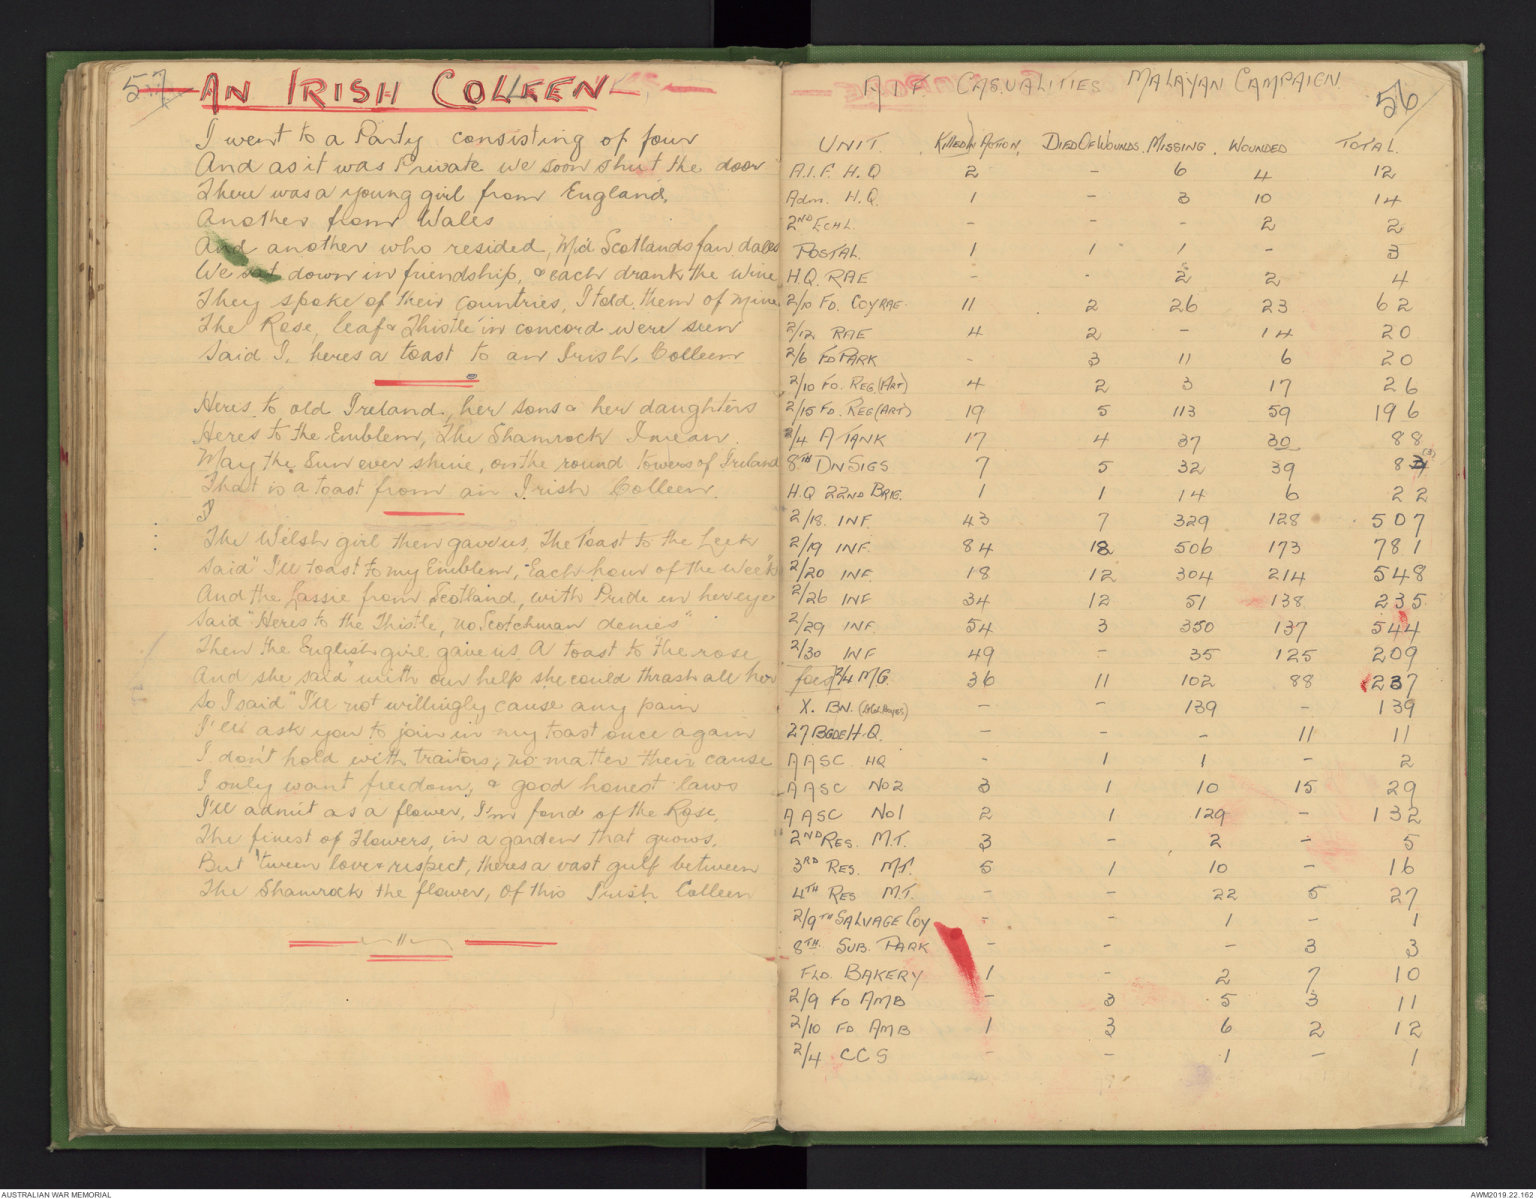 57
AN IRISH COLLEEN
I went to a Party consisting of four
And as it was Private we soon shut the door
There was a young girl from England,
Another from Wales
And another who resided, Mid Scotlands fair dales
We sat down in friendship, & each drank the wine
They spoke of their countries, I told them of mine
The Rose, leaf & Thistle in concord were seen
Said I, heres a toast to an Irish, Colleen
Heres to old Ireland, her sons & her daughters
Heres to the Emblem, The Shamrock I mean.
May the Sun ever shine, on the round towers of Ireland
That is a toast from an Irish Colleen.
I
The Welsh girl then gave us, The toast to the Leek
Said "I'll toast to my Emblem, Each hour of the Week"
And the Lassie from Scotland, with Pride in her eye
Said "Heres to the Thistle, no Scotchman denies"
Then the English girl gave us A toast to the rose
And she said "with our help she could thrash all her
So I said "I'll not willingly cause any pain
I'll ask you to join in my toast once again
I don't hold with traitors, no matter their cause
I only want freedom, & good honest laws
I'll admit as a flower, I'm fond of the Rose,
The finest of Flowers, in a garden that grows,
But 'tween love & respect, theres a vast gulf between
The Shamrock the flower, Of this Irish Colleen
56
A I F CASUALITIES MALAYAN CAMPAIGN
UNIT. KILLED IN ACTION, DIED OF WOUNDS. MISSING. WOUNDED TOTAL.
A.I.F. H.Q 2 - 6 4 12
Adm. H.Q. 1 - 3 10 14
2ND ECHL. - - - 2 2
POSTAL. 1 1 1 - 3
H.Q. RAE - - 2 2 4
2/10 FD. COY RAE. 11 2 26 23 62
2/12 RAE 4 2 - 14 20
2/6 FD PARK - 3 11 6 20
2/10 FD. REG (ART) 4 2 3 17 26
2/15 FD. REG (ART) 19 5 113 59 196
2/4 A TANK 17 4 37 30 88
8TH DN SIGS 7 5 32 39 83 (3)
H.Q 22ND BRIG. 1 1 14 6 22
2/18. INF. 43 7 329 128 507
2/19 INF. 84 18 506 173 781
2/20 INF. 18 12 304 214 548
2/26 INF 34 12 51 138 235
2/29 INF. 54 3 350 137 544
2/30 INF 49 - 35 125 209
foes 2/4 M/G. 36 11 102 88 237
X. BN. - - 139 - 139
27 BGDE H.Q. - - - 11 11
AASC HQ - 1 1 - 2
AASC No 2 3 1 10 15 29
AASC No 1 2 1 129 - 132
2ND RES. M.T. 3 - 2 - 5
3RD RES. M.T. 5 1 10 - 16
4TH RES M.T. - - 22 5 27
2/9TH SALVAGE COY - - 1 - 1
8TH. SUB. PARK - - - 3 3
FLD. BAKERY 1 - 2 7 10
2/9 FD AMB - 3 5 3 11
2/10 FD AMB 1 3 6 2 12
2/4 CCS - - 1 - 1
AUSTRALIAN WAR MEMORIAL
AWM2019.22.162